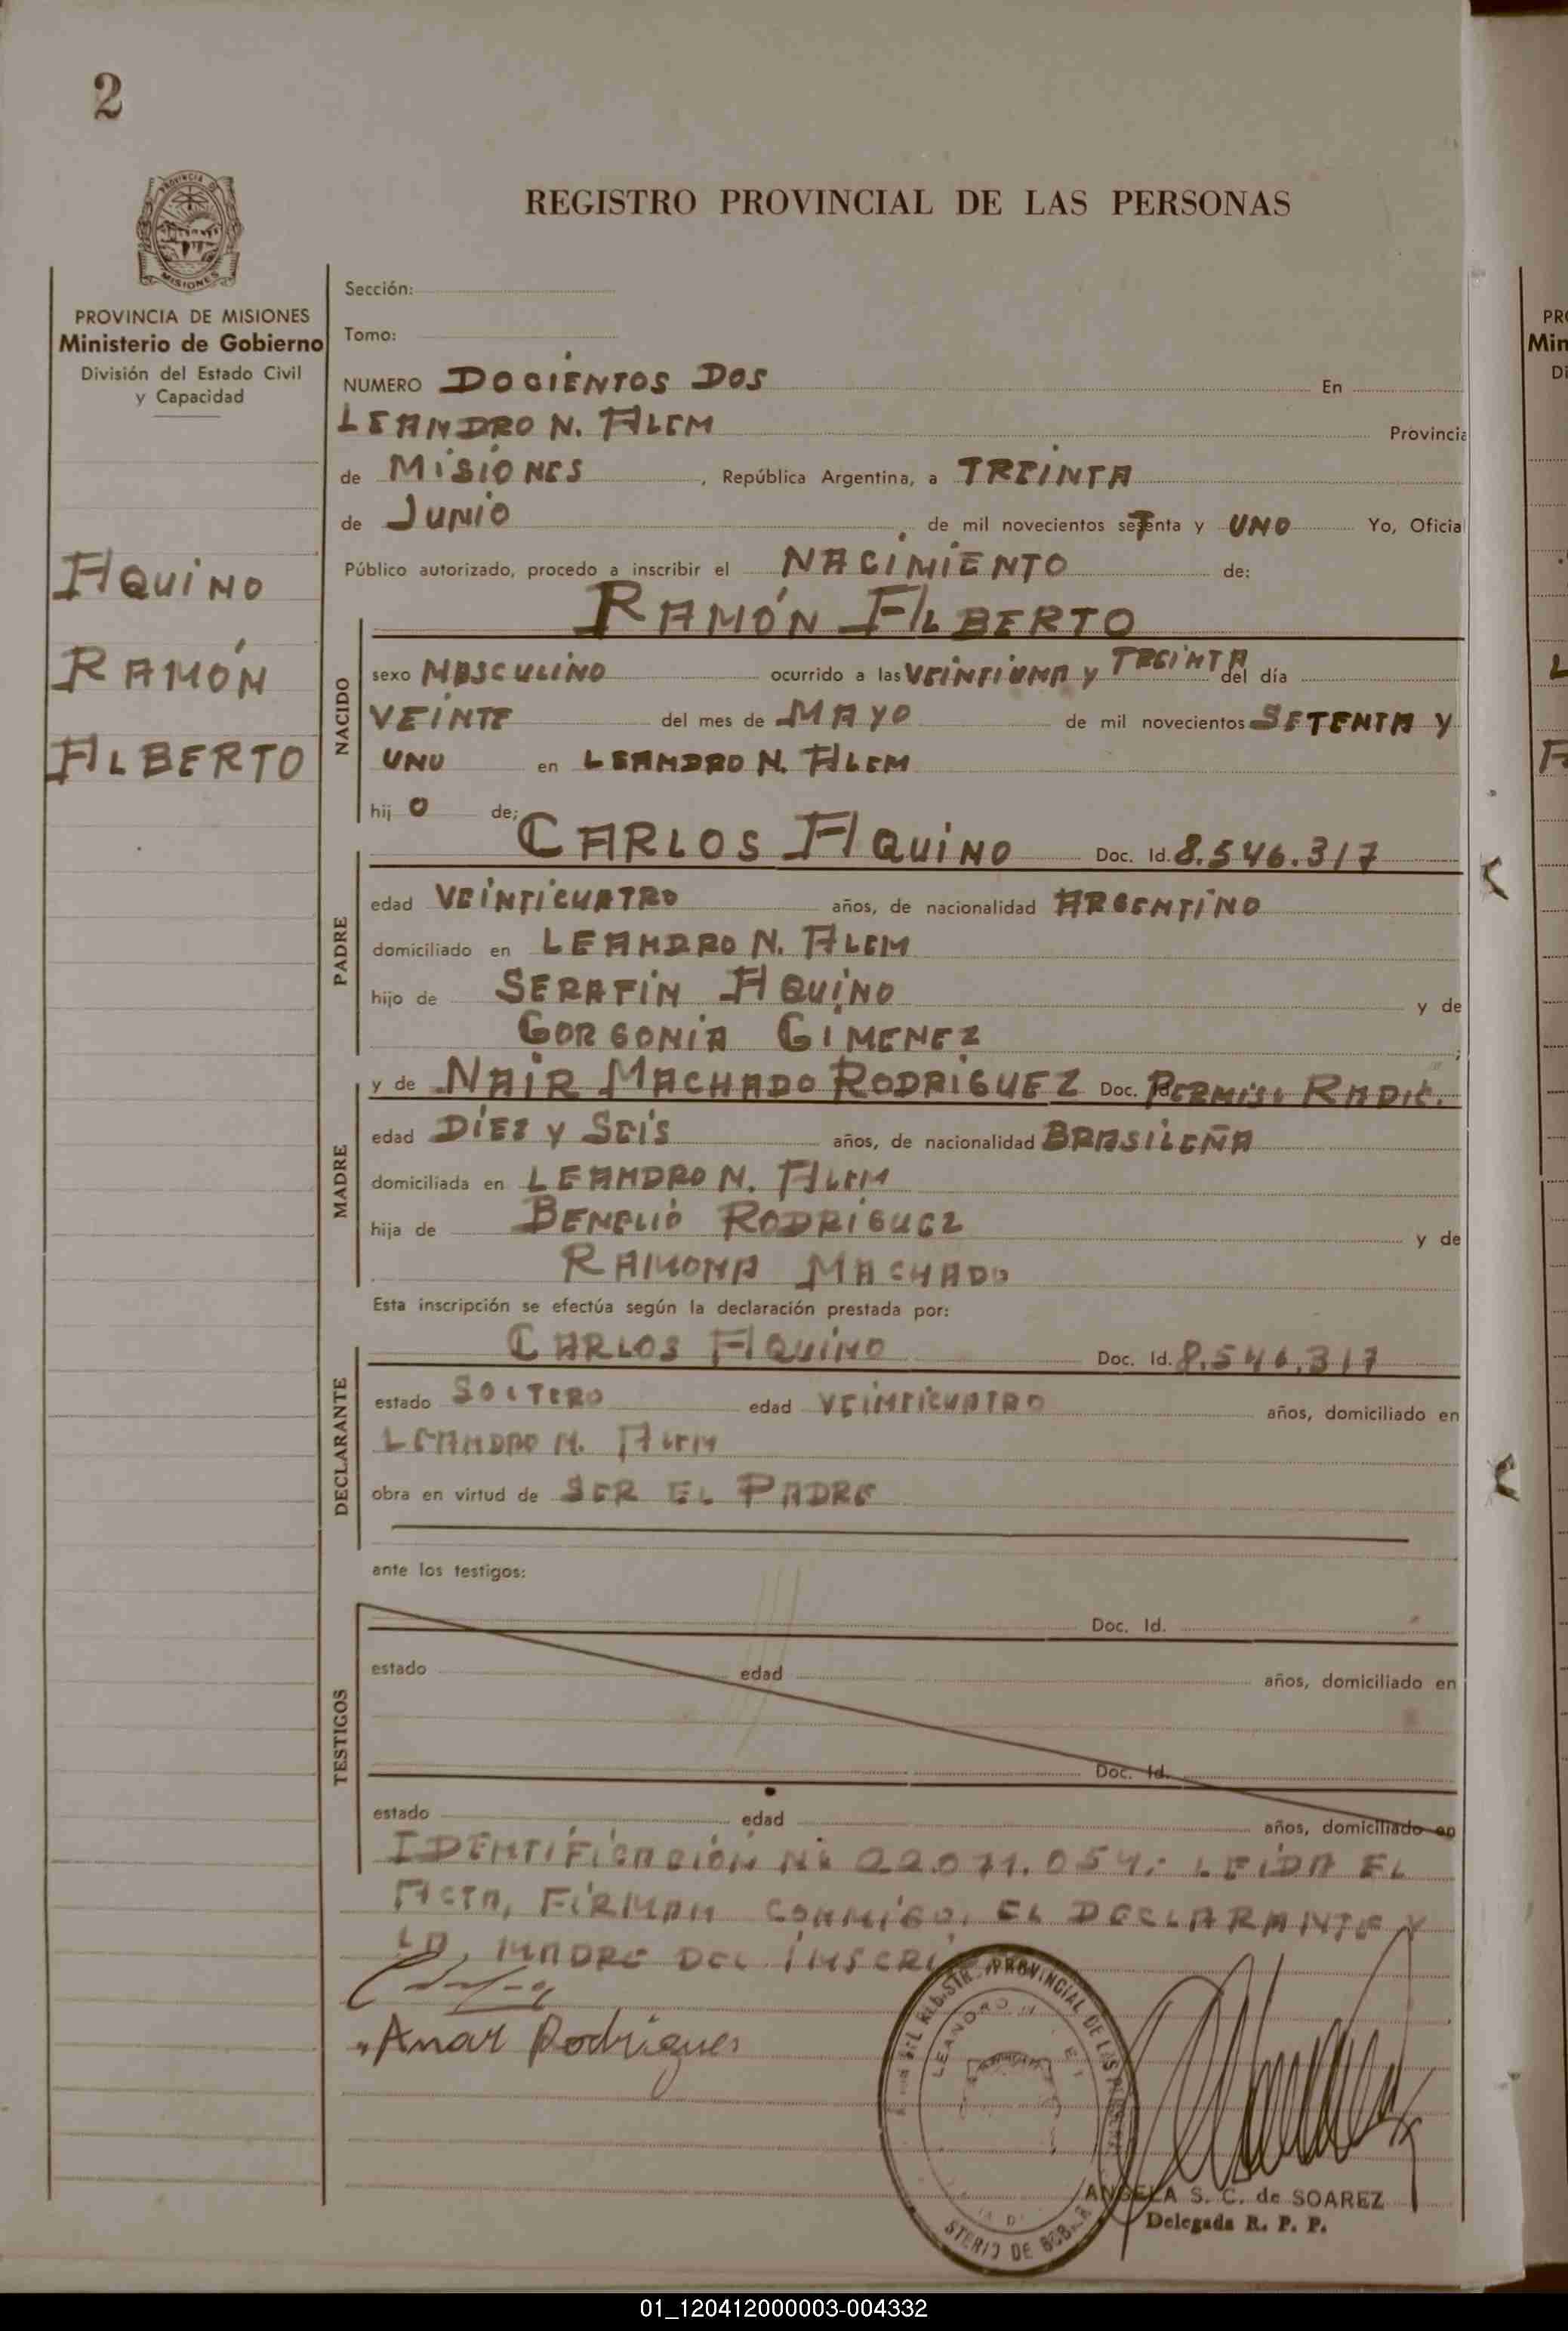 2
PROVINCIA DE MISIONES
REGISTRO PROVINCIAL DE LAS PERSONAS
PROVINCIA DE MISIONES
Ministerio de Gobierno
División del Estado Civil
y Capacidad
AQUINO
RAMÓN
ALBERTO
Sección:
Tomo:
NUMERO DOCIENTOS DOS En
LEANDRO N. ALEM Provincia
de MISIONES, República Argentina, a TREINTA
de JUNIO de mil novecientos setenta y UNO Yo, Oficial
Público autorizado, procedo a inscribir el NACIMIENTO de:
RAMÓN ALBERTO
NACIDO
sexo MASCULINO ocurrido a las VEINTIUNA y TREINTA del día
VEINTE del mes de MAYO de mil novecientos SETENTA Y
UNO en LEANDRO N. ALEM
hij O de;
CARLOS AQUINO Doc. Id. 8.546.317
PADRE
edad VEINTICUATRO años, de nacionalidad ARGENTINO
domiciliado en LEANDRO N. ALEM
hijo de SERAFIN AQUINO y de
GORGONIA GIMENEZ;
y de NAIR MACHADO RODRIGUEZ Doc. Id. PERMISO RADIC.
MADRE
edad DIEZ Y SEIS años, de nacionalidad BRASILEÑA
domiciliada en LEANDRO N. ALEM
hija de RODRIGUEZ y de
RAMONA MACHADO
Esta inscripción se efectúa según la declaración prestada por:
CARLOS AQUINO Doc. Id. 8.546.317
DECLARANTE
estado SOLTERO edad VEINTICUATRO años, domiciliado en
LEANDRO N. ALEM
obra en virtud de SER EL PADRE
ante los testigos:
TESTIGOS
Doc. Id.
estado edad años, domiciliado en
Doc. Id.
estado edad años, domiciliado en
IDENTIFICACIÓN Nº 22.071.054.- LEIDA EL
ACTA, FIRMAN CONMIGO, EL DECLARANTE Y
LA MADRE DEL
Anar Rodrigues
ANGELA S. C. de SOAREZ
Delegada R. P. P.
01_120412000003-004332